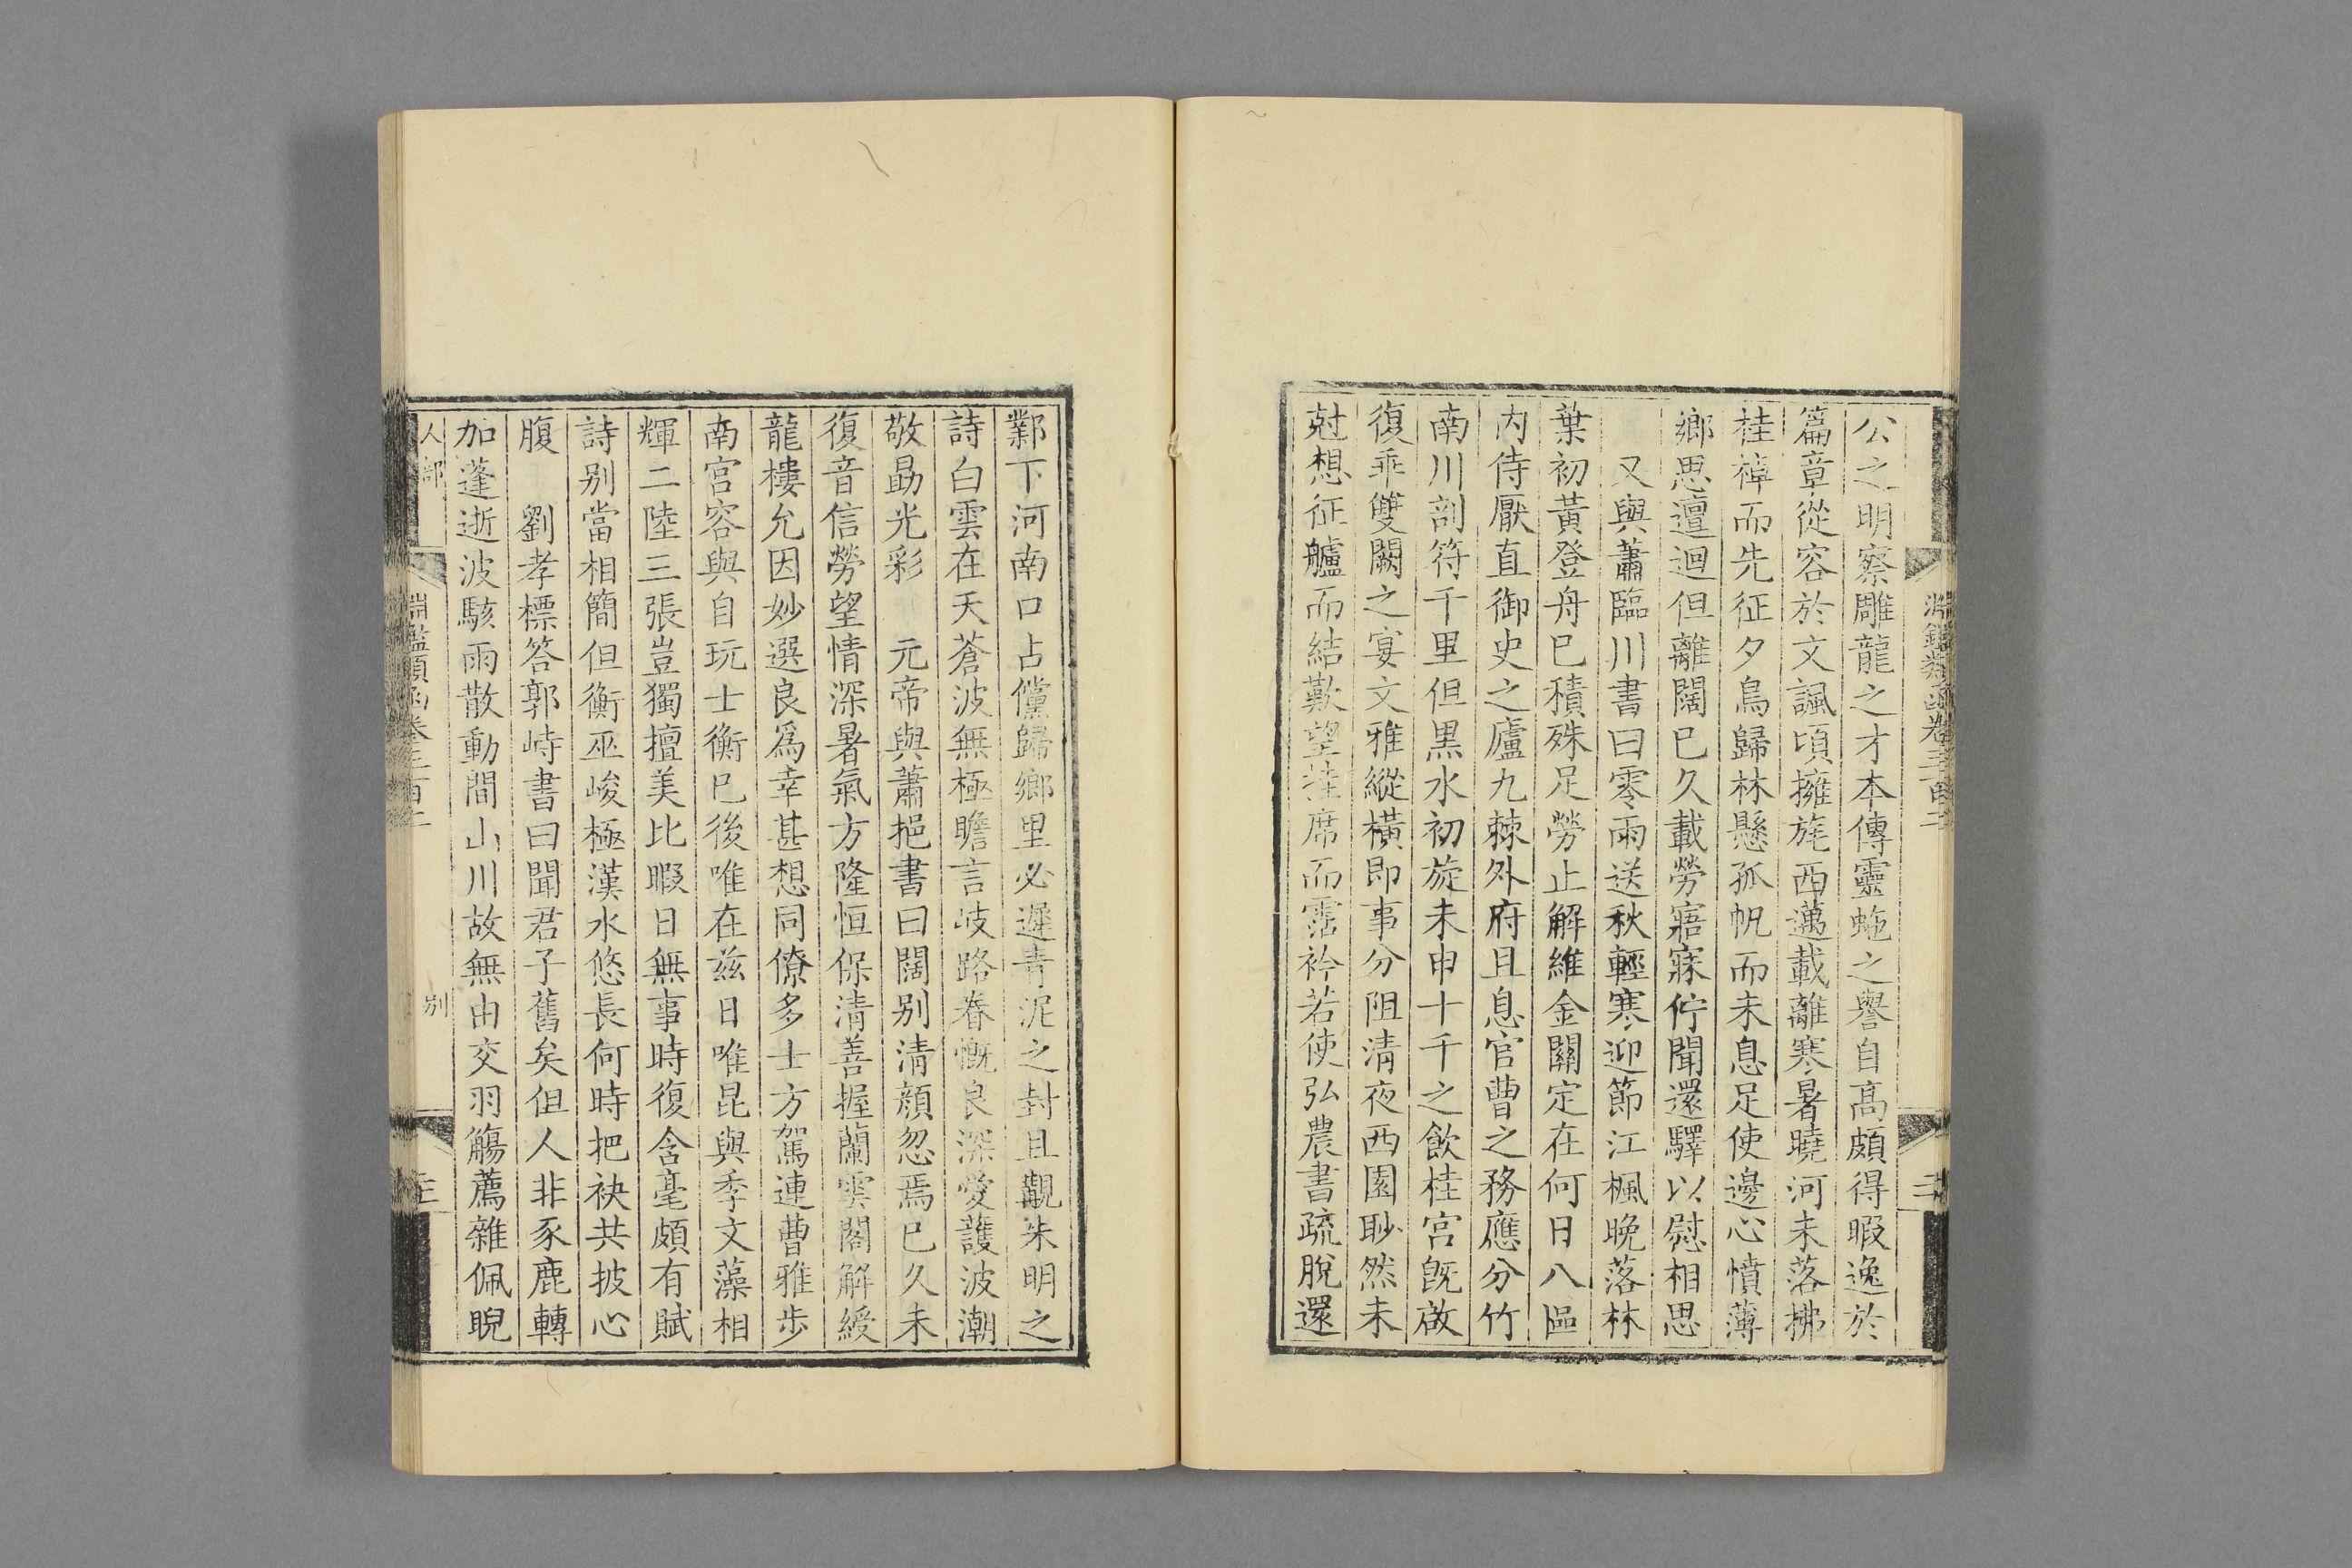 公之明察雕龍之才本傳靈虵之譽自高頗得暇逸於
篇章從容於文諷頃擁旄西邁載離寒暑曉河未落拂
桂棹而先征夕烏歸林懸孤帆而未息足使邊心憤薄
鄉思邅迴但離闊已久載勞寤寐佇聞還驛以慰相思
又與蕭臨川書曰零雨送秋輕寒迎節江楓曉落林
葉初黃登舟已積殊足勞止解維金闕定在何日八區
内侍厭直御史之廬九棘外府且息官曹之務應分竹
南川剖符千里但黑水初旋未申十千之飲桂宮旣啟
復乖雙闕之宴文雅縱橫即事分阻清夜西園眇然未
尅想征艫而結歎望挂席而霑衿若使弘農書疏脫還
鄴下河南口占儻歸鄉里必遲青泥之封且觀朱明之
詩白雲在天蒼波無極瞻言岐路眷慨良深愛護波潮
敬勗光彩　元帝與蕭挹書曰闊别清顏忽焉已久未
復音信勞望情深暑氣方隆恒保清善握蘭雲閣解綬
龍樓允因妙選良爲幸甚想同僚多士方駕連曹雅步
南宮容與自玩士衡已後唯在兹日唯昆與季文藻相
輝二陸三張豈獨擅美比暇日無事時復含毫頗有賦
詩别當相簡但衡巫峻極漢水悠長何時把袂共披心
腹　劉孝標答郭峙書曰聞君子舊矣但人非豕鹿轉
加蓬逝波駭雨散動間山川故無由交羽觴薦雜佩睨
人部
淵鑑類函卷三百二
别